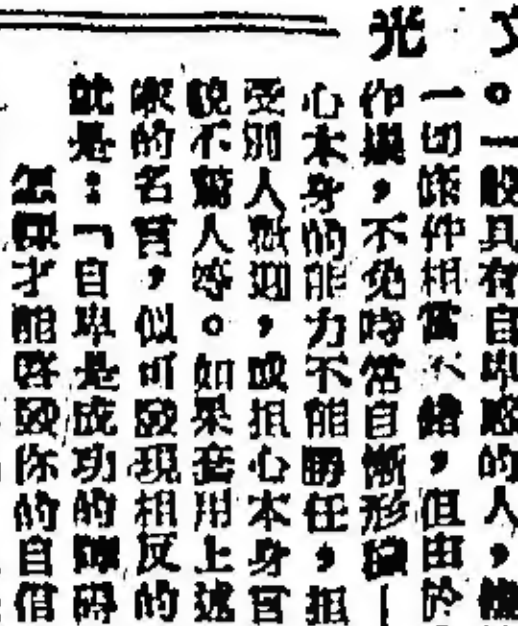 光
。一般具有自卑感的人，
一切條件相當不錯，但由於
作祟，不免時常自慚形穢
心本身的能力不能勝任，担
受別人歡迎，或担心本身言
貌不驚人等。如果套用上述
家的名言，似可發現相反的
就是：「自卑是成功的障碍
怎樣才能啓發你的自信